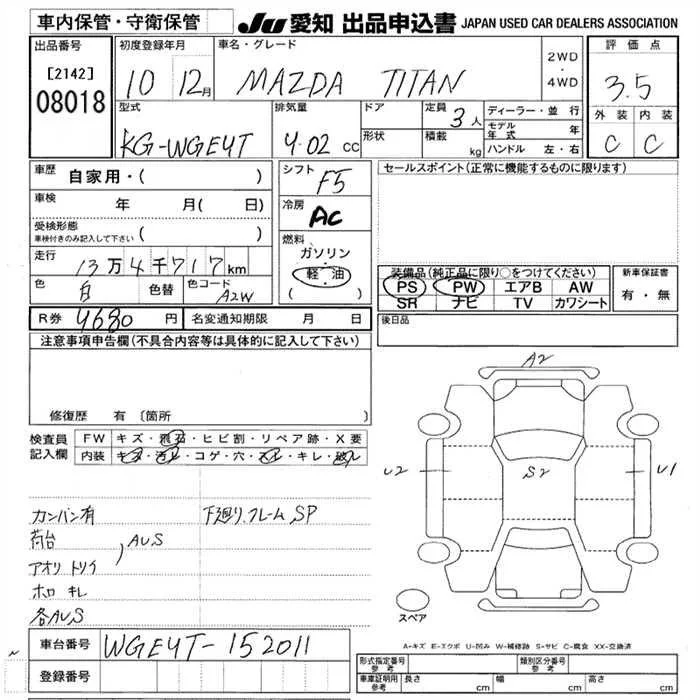 車内保管・守衛保管 JU 愛知 出品申込書 JAPAN USED CAR DEALERS ASSOCIATION
出品番号 初度登録年月 車名・グレード 2WD・4WD 評価点
[2142] 10 12月 MAZDA TITAN 3.5
08018 型式 排気量 ドア 定員 3人 ディーラー・並行 外装 内装
KG-WGE4T 4.02 cc 形状 積載 kg モデル年式 年 C C
ハンドル 左・右
車歴 自家用・( ) シフト F5 セールスポイント(正常に機能するものに限ります)
車検 年 月( 日) 冷房 AC
受検形態 ( )
車検付きのみ記入して下さい
燃料 ガソリン・軽・油 ( )
走行 13万4千717km
色 白 色替 色コード A2W
装備品(純正品に限り○をつけてください) 新車保証書
PS PW エアB AW 有・無
SR ナビ TV カワシート
R券 4680円 名変通知期限 月 日 後日品
注意事項申告欄(不具合内容等は具体的に記入して下さい)
修復歴 有 〔箇所
検査員記入欄 FW キズ・飛石・ヒビ割・リペア跡・X要
内装 キズ・汚レ・コゲ・穴・スレ・キレ・破レ
A2
U2 S2 U1
カンバン有 下廻り、フレーム SP
荷台
AUS
アオリ トリイ
ホロ キレ
各AUS
スペア
A-キズ E-エクボ U-凹み W-補修跡 S-サビ C-腐食 XX-交換済
車台番号 WGE4T-152011
登録番号
形式指定番号 参考 類別区分番号 参考
車庫証明用 参考 長さ cm 幅 cm 高さ cm